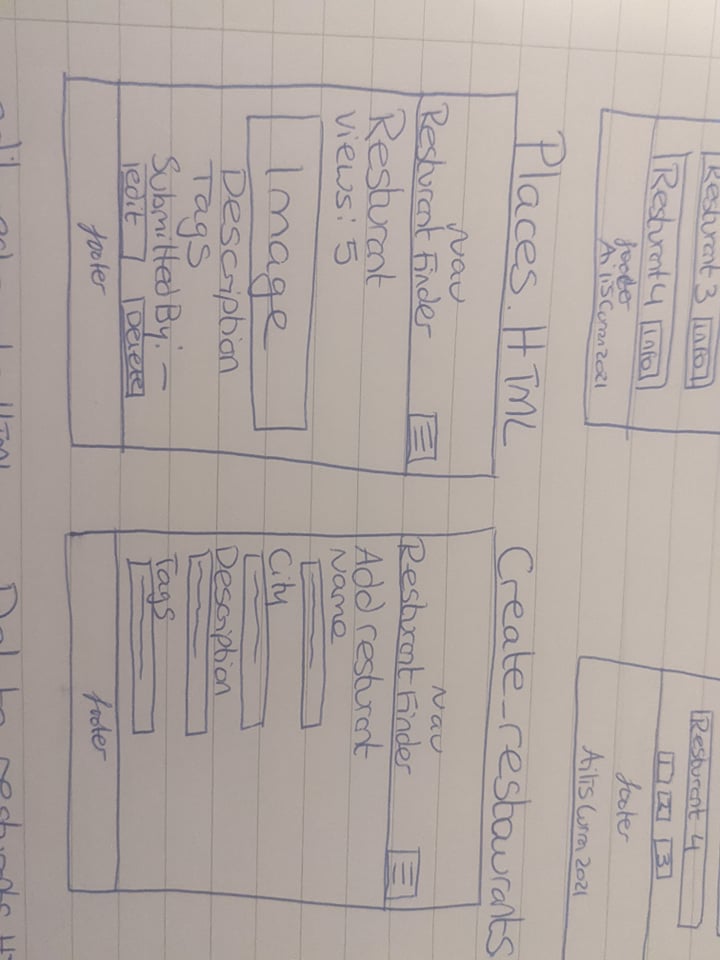 Resturant 3 info
Resturant 4 info
footer
Ailis Curran 2021
Resturant 4
1 2 3
footer
Ailis Curran 2021
Places.HTML
Nav
Resturant Finder
Resturant
views: 5
Image
Description
Tags
Submitted By: —
edit Delete
footer
Create_restaurants
Nav
Resturant Finder
Add resturant
Name
City
Description
Tags
footer
HTML